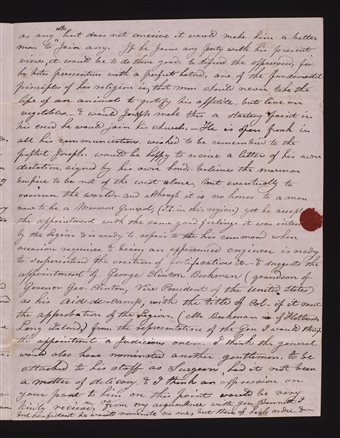 as any other but does not conceive it would make him a better
man to join any. If he joins any party with his present
views, it would be to do them good to defend the oppressed, for
he hates persecution with a perfect hatred, one of the fundamental
principles of his religion is, that man should never take the
life of an animal to gratify his appetite, but live on
vegetables. & would Joseph make this a starting point in
his creed he would join his church. He is open frank in
all his communications, wished to be remembered to the
prophet Joseph, would be happy to receive a letter of his own
dictation, signed by his own hand. believes the mormon
empire to be not of the west alone, but eventually to
overrun the world. and although it is no honor to a man
now to be a Mormon General (its in this region) yet he accepts
the appointment with the same good feelings it was intended
by the legion & is ready to repair to the his command when
occasion requires, & being an experienced engineer is ready
to superintend the erection of fortifications &c. & suggests the
appointment of George Clinton Beekman (grandson of
Governor Geo. Clinton, Vice President of the United States)
as his Aid-de-camp, with the title of Col. if it meet
the approbation of the Legion, (Mr Beekman is of Flatbush
Long Island) from the representation of the Gen. I would think
the appointment a judicious one. I think the general
would also have nominated another gentleman, to be
attached to his staff as Surgeon, had it not been
a matter of delicacy, & I think an expression on
your part to him on this point would be very
kindly received, from my acquaintance with Gen Bennet I
feel confident he would nominate no one but those of high order &